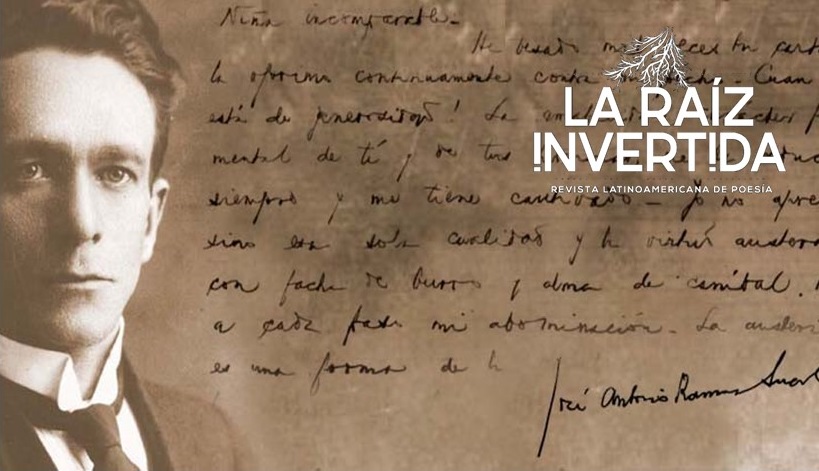 Niña incomparable.-
He besado
la oprimo continuamente contra
está de generosidad! La
mental de tí y de tus
siempre y me tiene cautivado - Yo no
sino esa sola cualidad y la virtud
con facha de burro y alma de caníbal.
a cada paso mi abominación. La
es una forma de
José Antonio Ramos
LA RAÍZ
INVERTIDA
REVISTA LATINOAMERICANA DE POESÍA